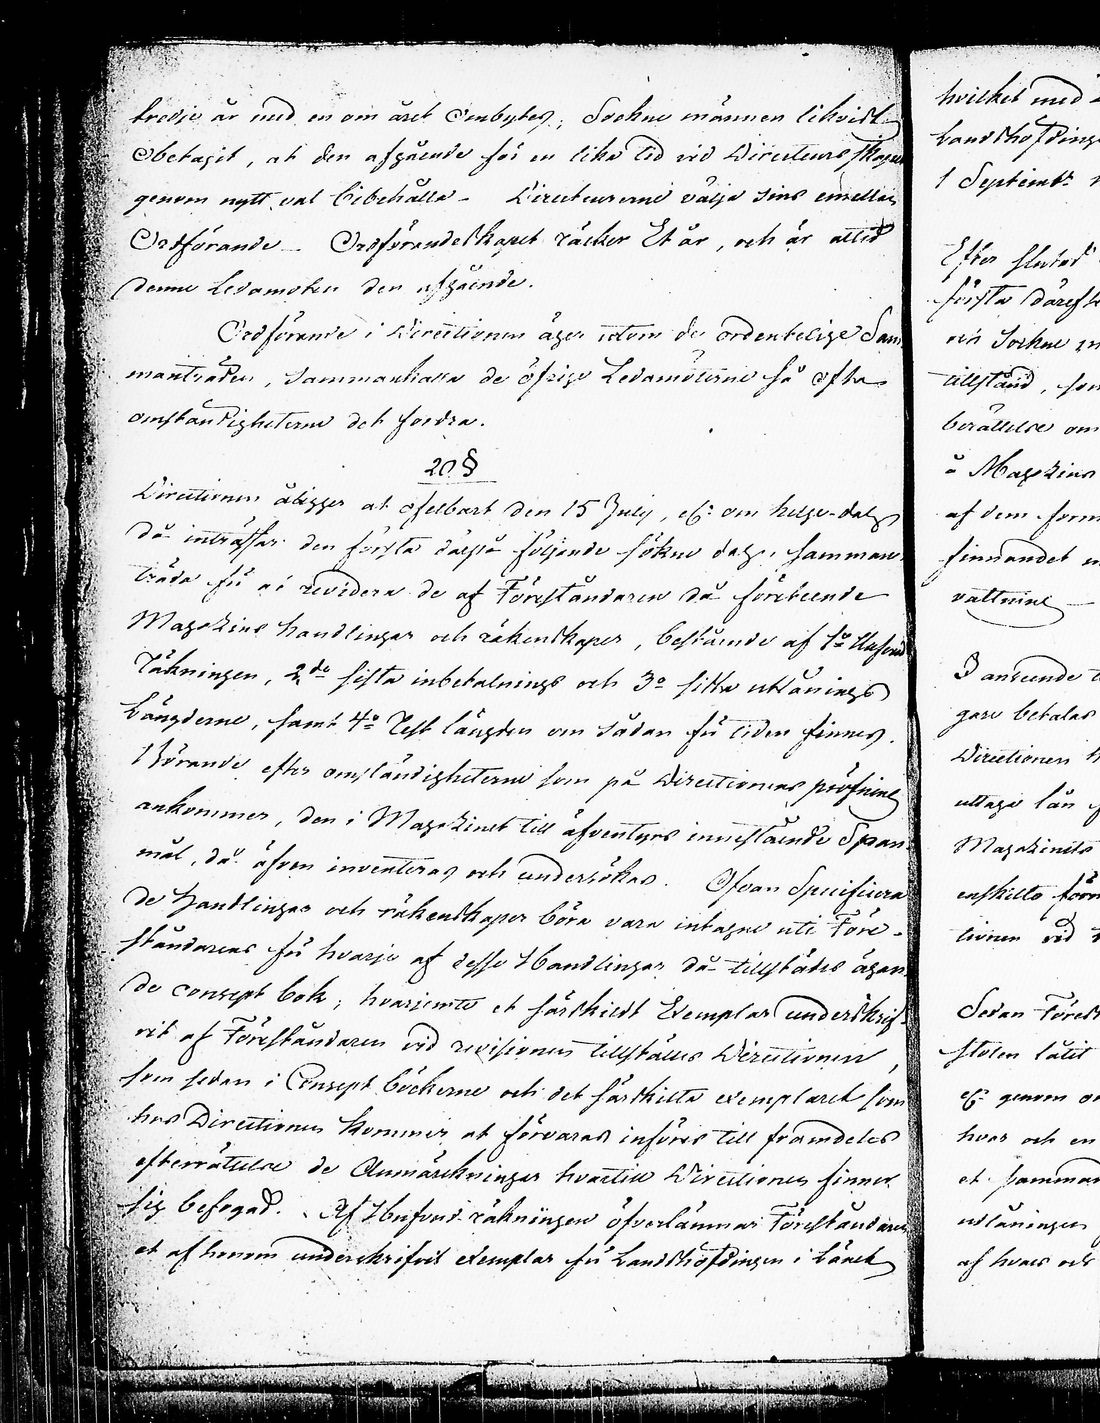 tredje år med en om året ombytes; Sockne männen likväl
obetagit, at den afgående för en lika tid vid Directeurskapet
genom nytt val bibehålla – Directeurerne välja sins emellan
Ordförande – Ordförandeskapet räcker Et år, och är altid
denne Ledamoten den afgående.
Ordförande i Directionen äger utom de ordentelige Sam
manträden, sammankalla de öfrige Ledamöterne så ofta
omständigheterne det fordra.
20 §
Directionen åligger at ofelbart den 15 July, eller om helge-dag
då inträffar den första därpå följande sökne dag, samman
träda för at revidera de af Föreståndaren då företeende
Magazins handlingar och räkenskaper, bestående af 1o Hufvud
Räkningen, 2do sista inbetalnings och 3o sista utlånings
Längderne, samt 4o Rest längden om sådan för tiden finnes.
Börande efter omständigheterne som på Directionens pröfning
ankommer, den i Magazinet till äfventyrs innestående Span-
mål, då äfven inventeras och undersökas. Ofvan Specificera
de Handlingar och räkenskaper böra vara intagne uti Före-
ståndarens för hvarje af desse Handlingar då tillstädes ägan
de concept bok; hvarjemte et särskildt Exemplar underskrif-
vit af Föreståndaren vid revisionen tillställes Directionen,
som sedan i Concept böckerne och det särskilta exemplaret som
hos Directionen kommer at förvaras införes till framdeles
efterrättelse de Anmärkningar hvartill Directionen finner
sig befogad. Af Hufvud räkningen öfverlämnar Föreståndaren
et af honom underskrifvit exemplar för Landshöfdingen i Länet
hvilket med
Landshöfdinge
1 Septembr
Efter slutad
första däreft
och Sockne
tillstånd, som
berättelse om
å Magazins
af dem
finnandet
valtning –
I anseende
gare betalas
Directionen
uttaga lån
Magazinets
enskilte
tionen vid
Sedan Förest
stolen låtit
eller genom
hvar och en
et samman
utlåningen
af hvars och